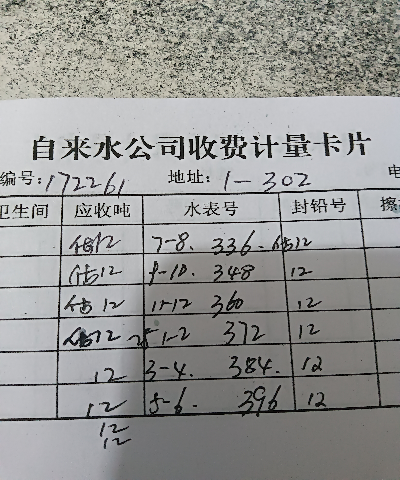 自来水公司收费计量卡片
编号:172261 地址: 1-302 电
卫生间 应收吨 水表号 封铅号 擦
估12 7-8. 336. 估12
估12 9-10. 348 12
估12 11-12 360 12
估12 25-1-2 372 12
12 3-4. 384. 12
12 5-6. 396 12
12
12